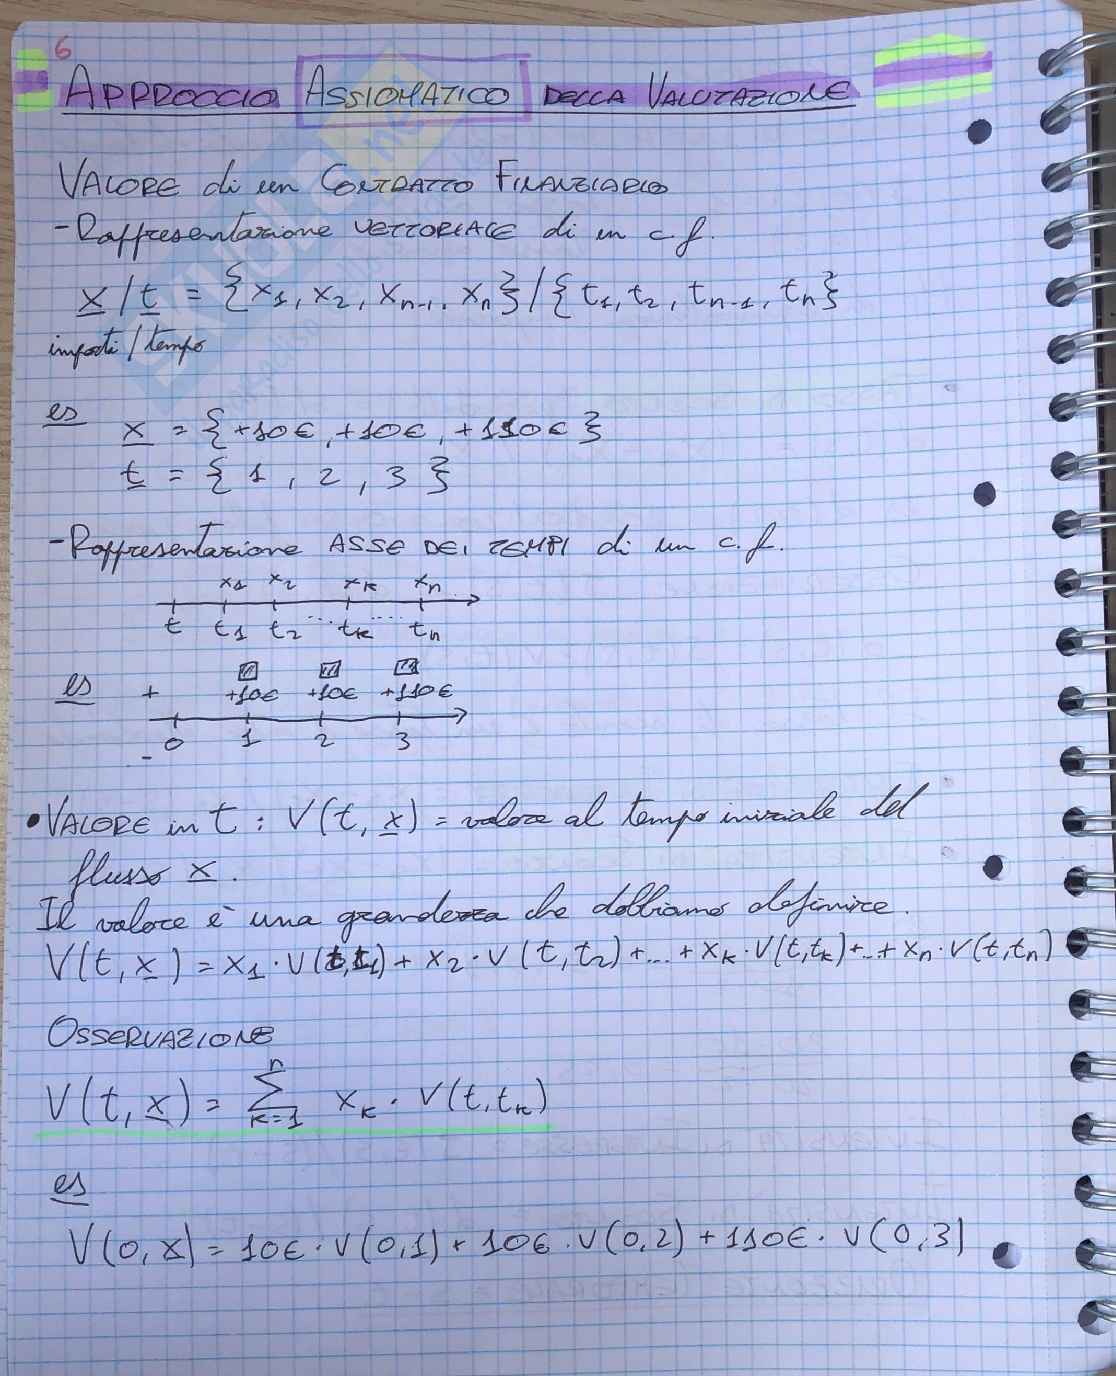 6
APPROCCIO ASSIOMATICO DELLA VALUTAZIONE
VALORE di un CONTRATTO FINANZIARIO
- Rappresentazione VETTORIALE di un c.f.
x / t = {x1, x2, xn-1, xn} / {t1, t2, tn-1, tn}
importi / tempo
es x = {+10€, +10€, +110€}
t = {1, 2, 3}
- Rappresentazione ASSE DEI TEMPI di un c.f.
x1 x2 xk xn
t t1 t2 ... tk ... tn
es + +10€ +10€ +110€
- 0 1 2 3
• VALORE in t : V(t, x) = valore al tempo iniziale del
flusso x.
Il valore è una grandezza che dobbiamo definire.
V(t, x) = x1 · V(t,t1) + x2 · V(t,t2) + ... + xk · V(t,tk) + .. + xn · V(t,tn)
OSSERVAZIONE
V(t, x) = Σ k=1 n xk · V(t,tk)
es
V(0, x) = 10€ · V(0,1) + 10€ · V(0,2) + 110€ · V(0,3)